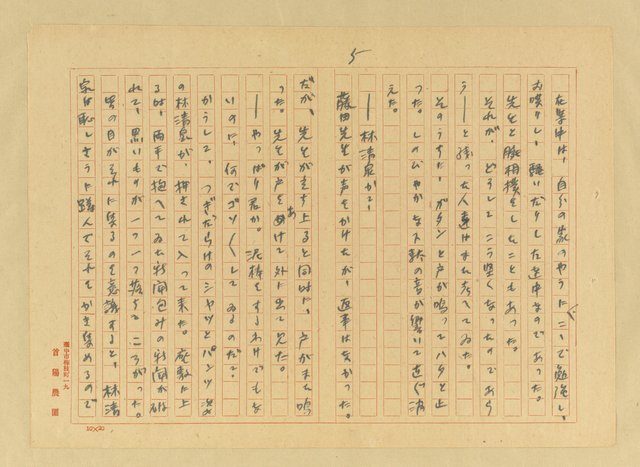 5
在学中は、自分の家のやうにこゝで勉強し、
お喋りし、騒いだりした連中なのであった。
先生と腕相撲をしたこともあった。
それが、どうしてこう堅くなったのであら
う——と残った人達はまた考へてゐた。
そのうちに、ガタンと戸が鳴ってハタと止
つた。しのびやかな下駄の音が響いて直ぐ消
えた。
——林清泉か?
藤田先生が声をかけたが、返事は無かった。
だが、先生が立ち上ると同時に、戸がまた鳴
つた。先生が戸を開けて外に出て見た。
——やっぱり君か。泥棒をするわけでもな
いのに、何でゴソ〳〵してゐるのだ?
かうして、つぎだらけのシャツとパンツ姿
の林清泉が、押されて入って来た。座敷に上
る時、両手で抱へてゐた新聞包みの新聞が破
れて、黒いものが一つ一つ落ちてころがった。
皆の目がそれに集るのを意識すると、林清
泉は恥しさうに蹲んでそれをかき集めるので
臺中市梅枝町一九
首陽農園
10×20